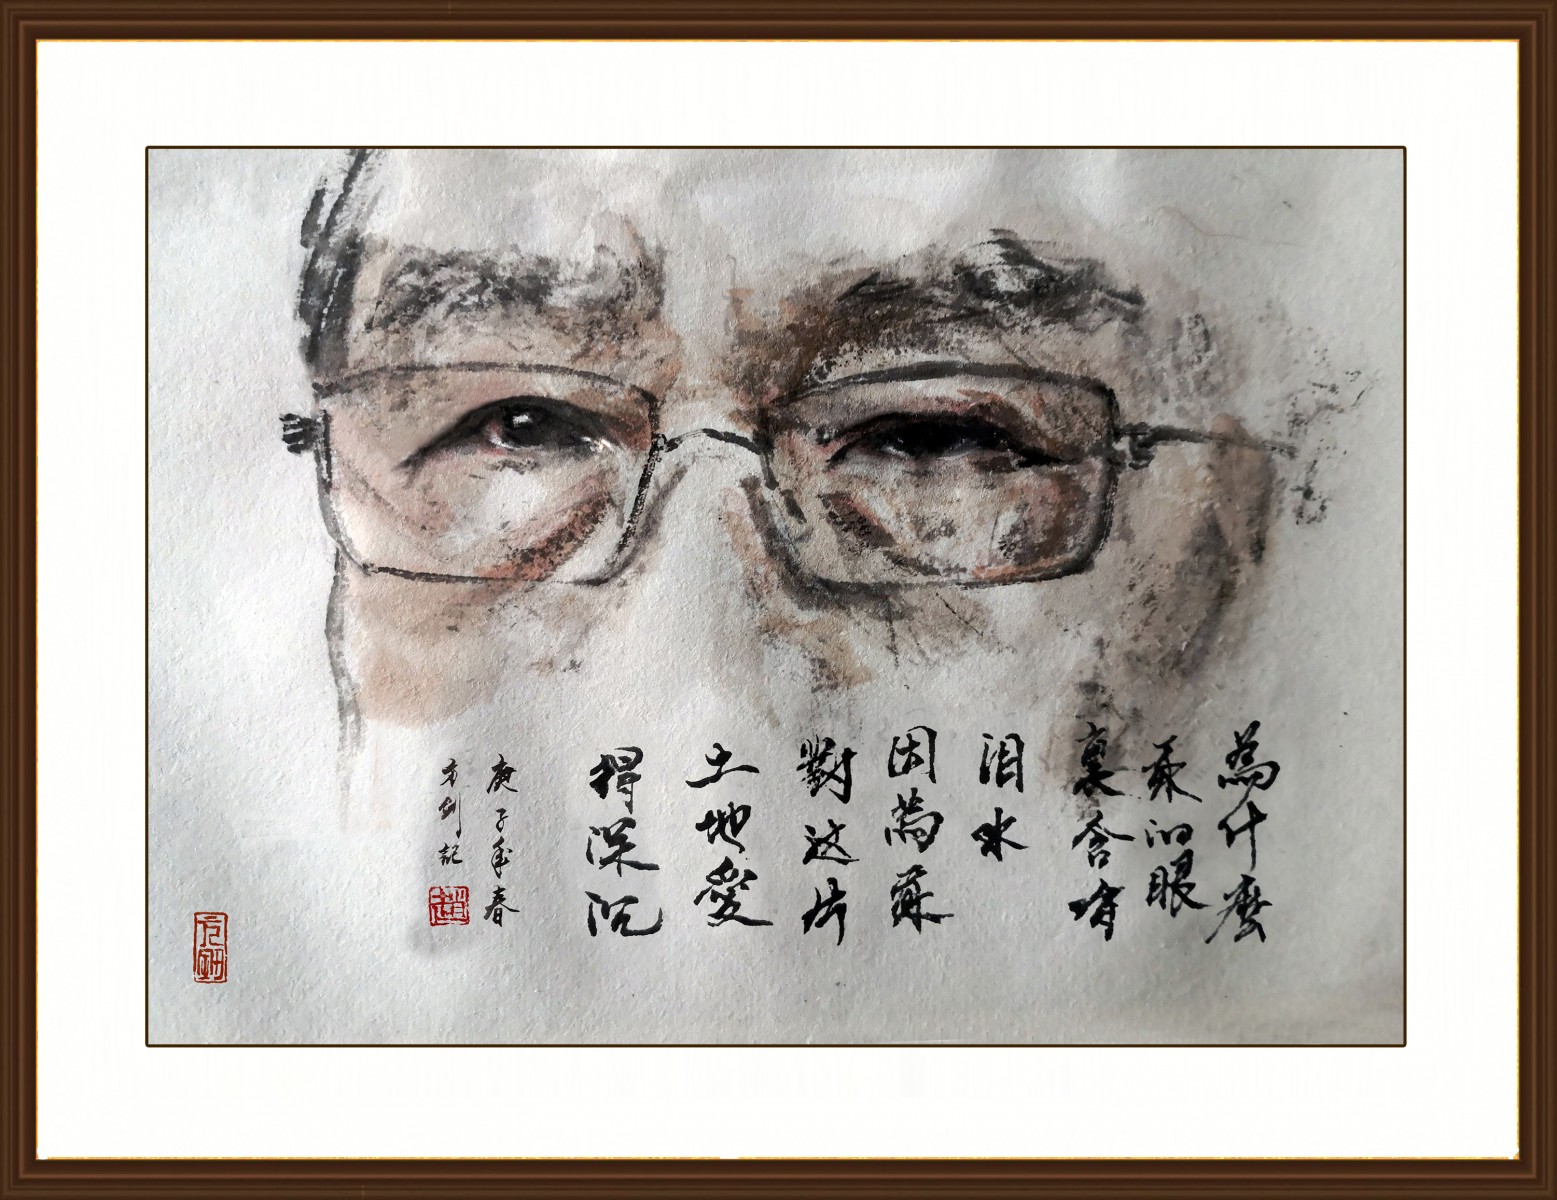 為什麼
我的眼
裏含有
泪水
因為我
對这片
土地愛
得深沉
庚子年春
方剑記
趙